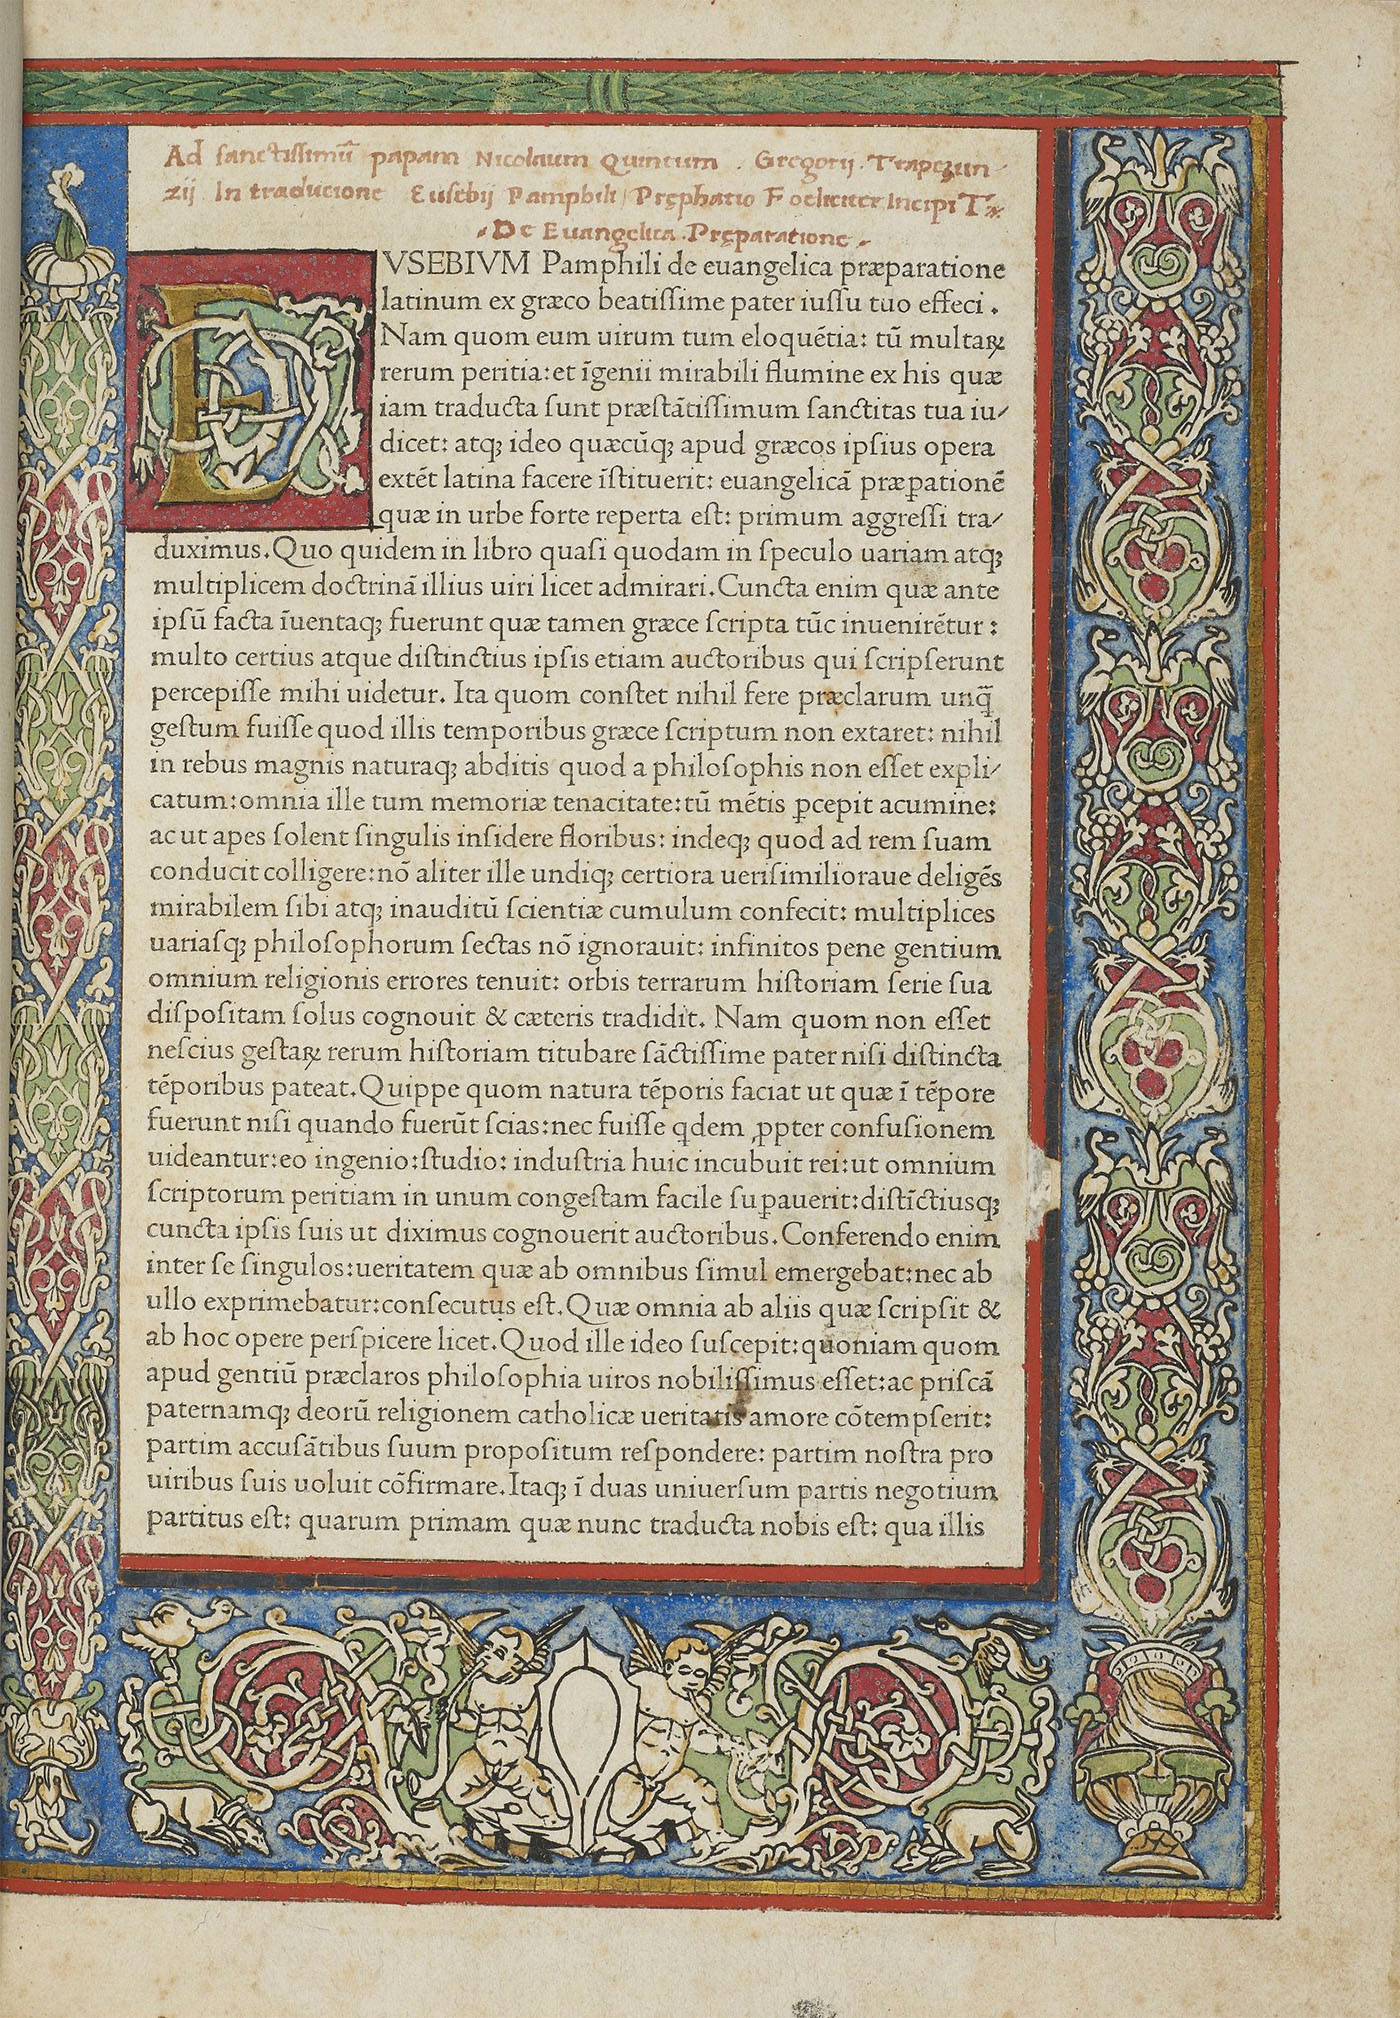 Ad sanctissimū papam Nicolaum Quintum . Gregorij . Trapezun-
zij In traducione Eusebij Pamphili Pręphatio Foeliciter IncipiT
De Euangelica . Pręparatione
EVSEBIVM Pamphili de euangelica præparatione
latinum ex græco beatissime pater iussu tuo effeci .
Nam quom eum uirum tum eloquētia: tū multaꝝ
rerum peritia: et īgenii mirabili flumine ex his quæ
iam traducta sunt præstātissimum sanctitas tua iu-
dicet: atqꝫ ideo quæcūqꝫ apud græcos ipsius opera
extēt latina facere īstituerit: euangelicā præꝑationē
quæ in urbe forte reperta est: primum aggressi tra-
duximus. Quo quidem in libro quasi quodam in speculo uariam atqꝫ
multiplicem doctrinā illius uiri licet admirari. Cuncta enim quæ ante
ipsū facta īuentaqꝫ fuerunt quæ tamen græce scripta tūc inuenirētur :
multo certius atque distinctius ipsis etiam auctoribus qui scripserunt
percepisse mihi uidetur. Ita quom constet nihil fere præclarum unq̄
gestum fuisse quod illis temporibus græce scriptum non extaret: nihil
in rebus magnis naturaqꝫ abditis quod a philosophis non esset expli-
catum: omnia ille tum memoriæ tenacitate: tū mētis ꝑcepit acumine:
ac ut apes solent singulis insidere floribus: indeqꝫ quod ad rem suam
conducit colligere: nō aliter ille undiqꝫ certiora uerisimilioraue deligēs
mirabilem sibi atqꝫ inauditū scientiæ cumulum confecit: multiplices
uariasqꝫ philosophorum sectas nō ignorauit: infinitos pene gentium
omnium religionis errores tenuit: orbis terrarum historiam serie sua
dispositam solus cognouit & cæteris tradidit. Nam quom non esset
nescius gestaꝝ rerum historiam titubare sāctissime pater nisi distincta
tēporibus pateat. Quippe quom natura tēporis faciat ut quæ ī tēpore
fuerunt nisi quando fuerūt scias: nec fuisse qdem ꝓpter confusionem
uideantur: eo ingenio: studio: industria huic incubuit rei: ut omnium
scriptorum peritiam in unum congestam facile suꝑauerit: distīctiusqꝫ
cuncta ipsis suis ut diximus cognouerit auctoribus. Conferendo enim
inter se singulos: ueritatem quæ ab omnibus simul emergebat: nec ab
ullo exprimebatur: consecutus est. Quæ omnia ab aliis quæ scripsit &
ab hoc opere perspicere licet. Quod ille ideo suscepit: quoniam quom
apud gentiū præclaros philosophia uiros nobilissimus esset: ac priscā
paternamqꝫ deorū religionem catholicæ ueritatis amore cōtempserit:
partim accusātibus suum propositum respondere: partim nostra pro
uiribus suis uoluit cōfirmare. Itaqꝫ ī duas uniuersum partis negotium
partitus est: quarum primam quæ nunc traducta nobis est: qua illis